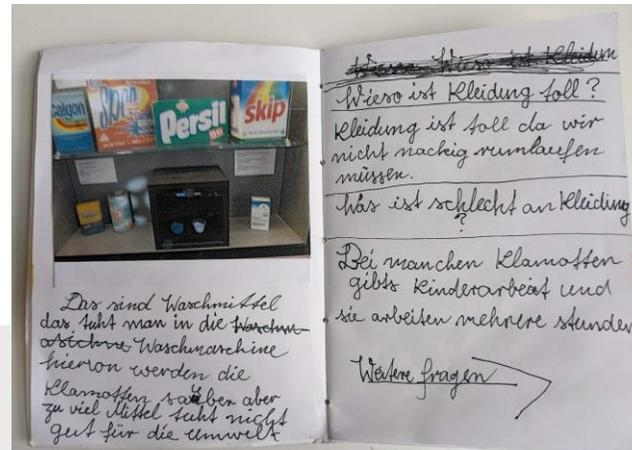 Calgon
Spee
Persil
Skip
Das sind Waschmittel
das tuht man in die Waschm-
aschine Waschmaschine
hiervon werden die
Klamotten sauber aber
zu viel Mittel tuht nicht
gut für die Umwelt
Wieso ist Kleidun
Wieso ist Kleidung toll?
Kleidung ist toll da wir
nicht nackig rumlaufen
müssen.
Was ist schlecht an Kleidung
?
Bei manchen Klamotten
gibts Kinderarbeit und
sie arbeiten mehrere stunden
Weitere fragen